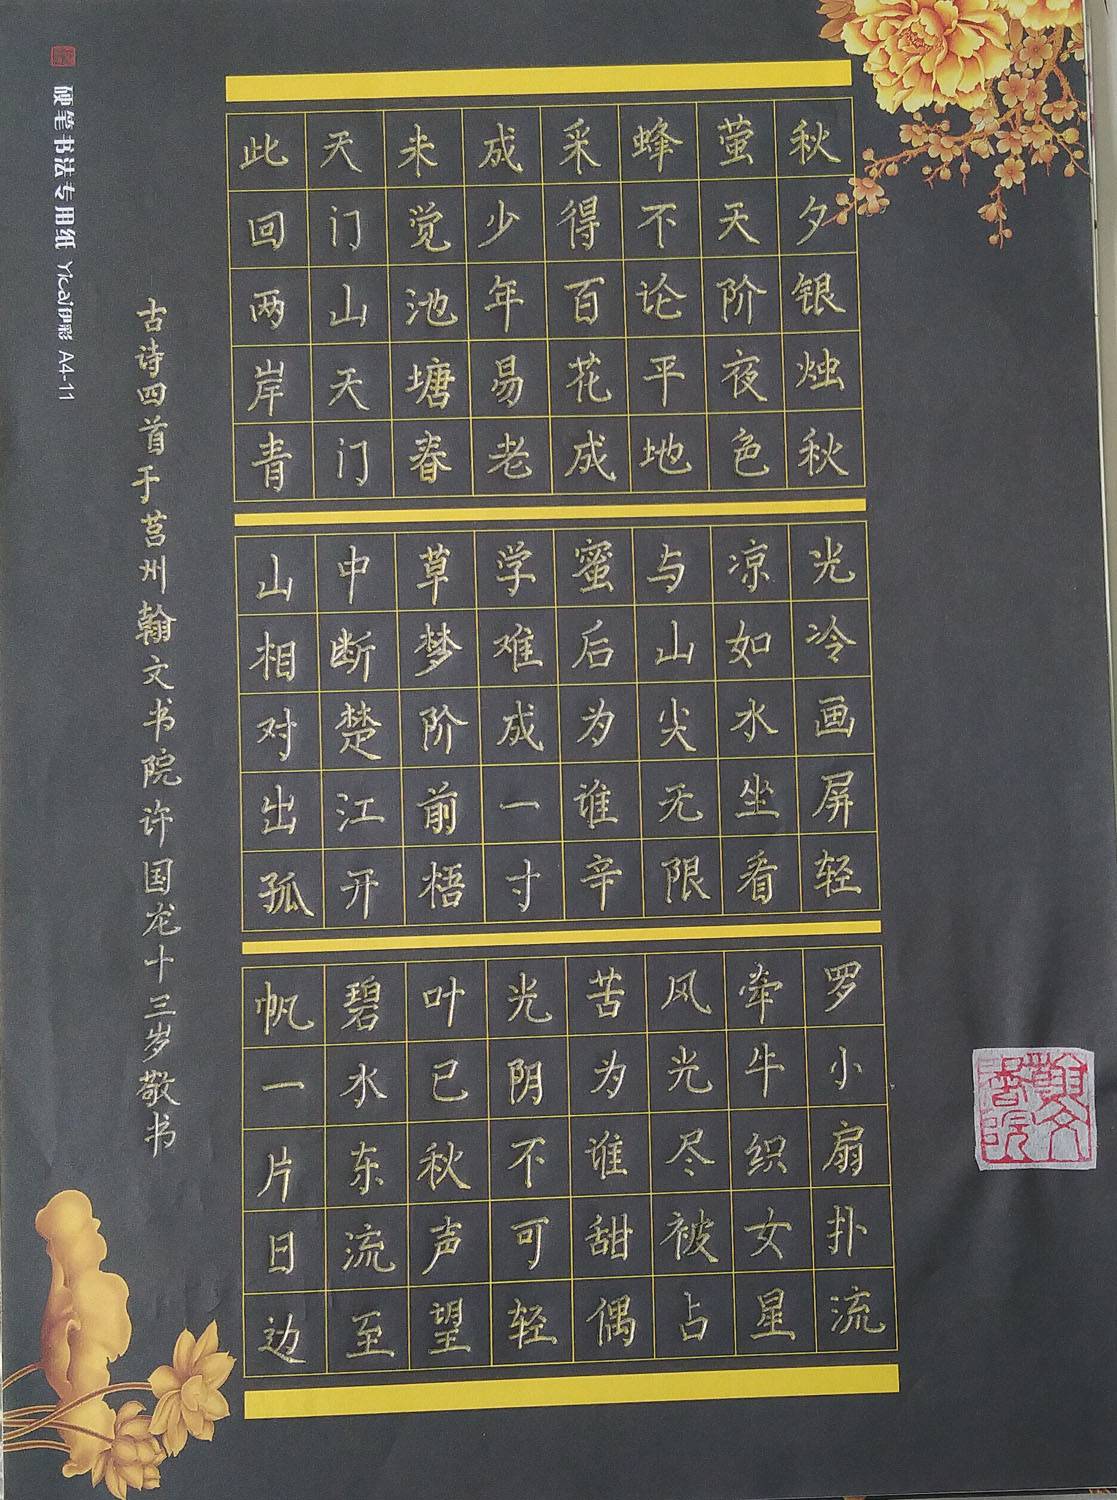 秋夕银烛秋光冷画屏轻罗小扇扑流
萤天阶夜色凉如水坐看牵牛织女星
蜂不论平地与山尖无限风光尽被占
采得百花成蜜后为谁辛苦为谁甜偶
成少年易老学难成一寸光阴不可轻
未觉池塘春草梦阶前梧叶已秋声望
天门山天门中断楚江开碧水东流至
此回两岸青山相对出孤帆一片日边
古诗四首于莒州翰文书院许国龙十三岁敬书
硬笔书法专用纸 Yicai伊彩 A4-11
翰文书院